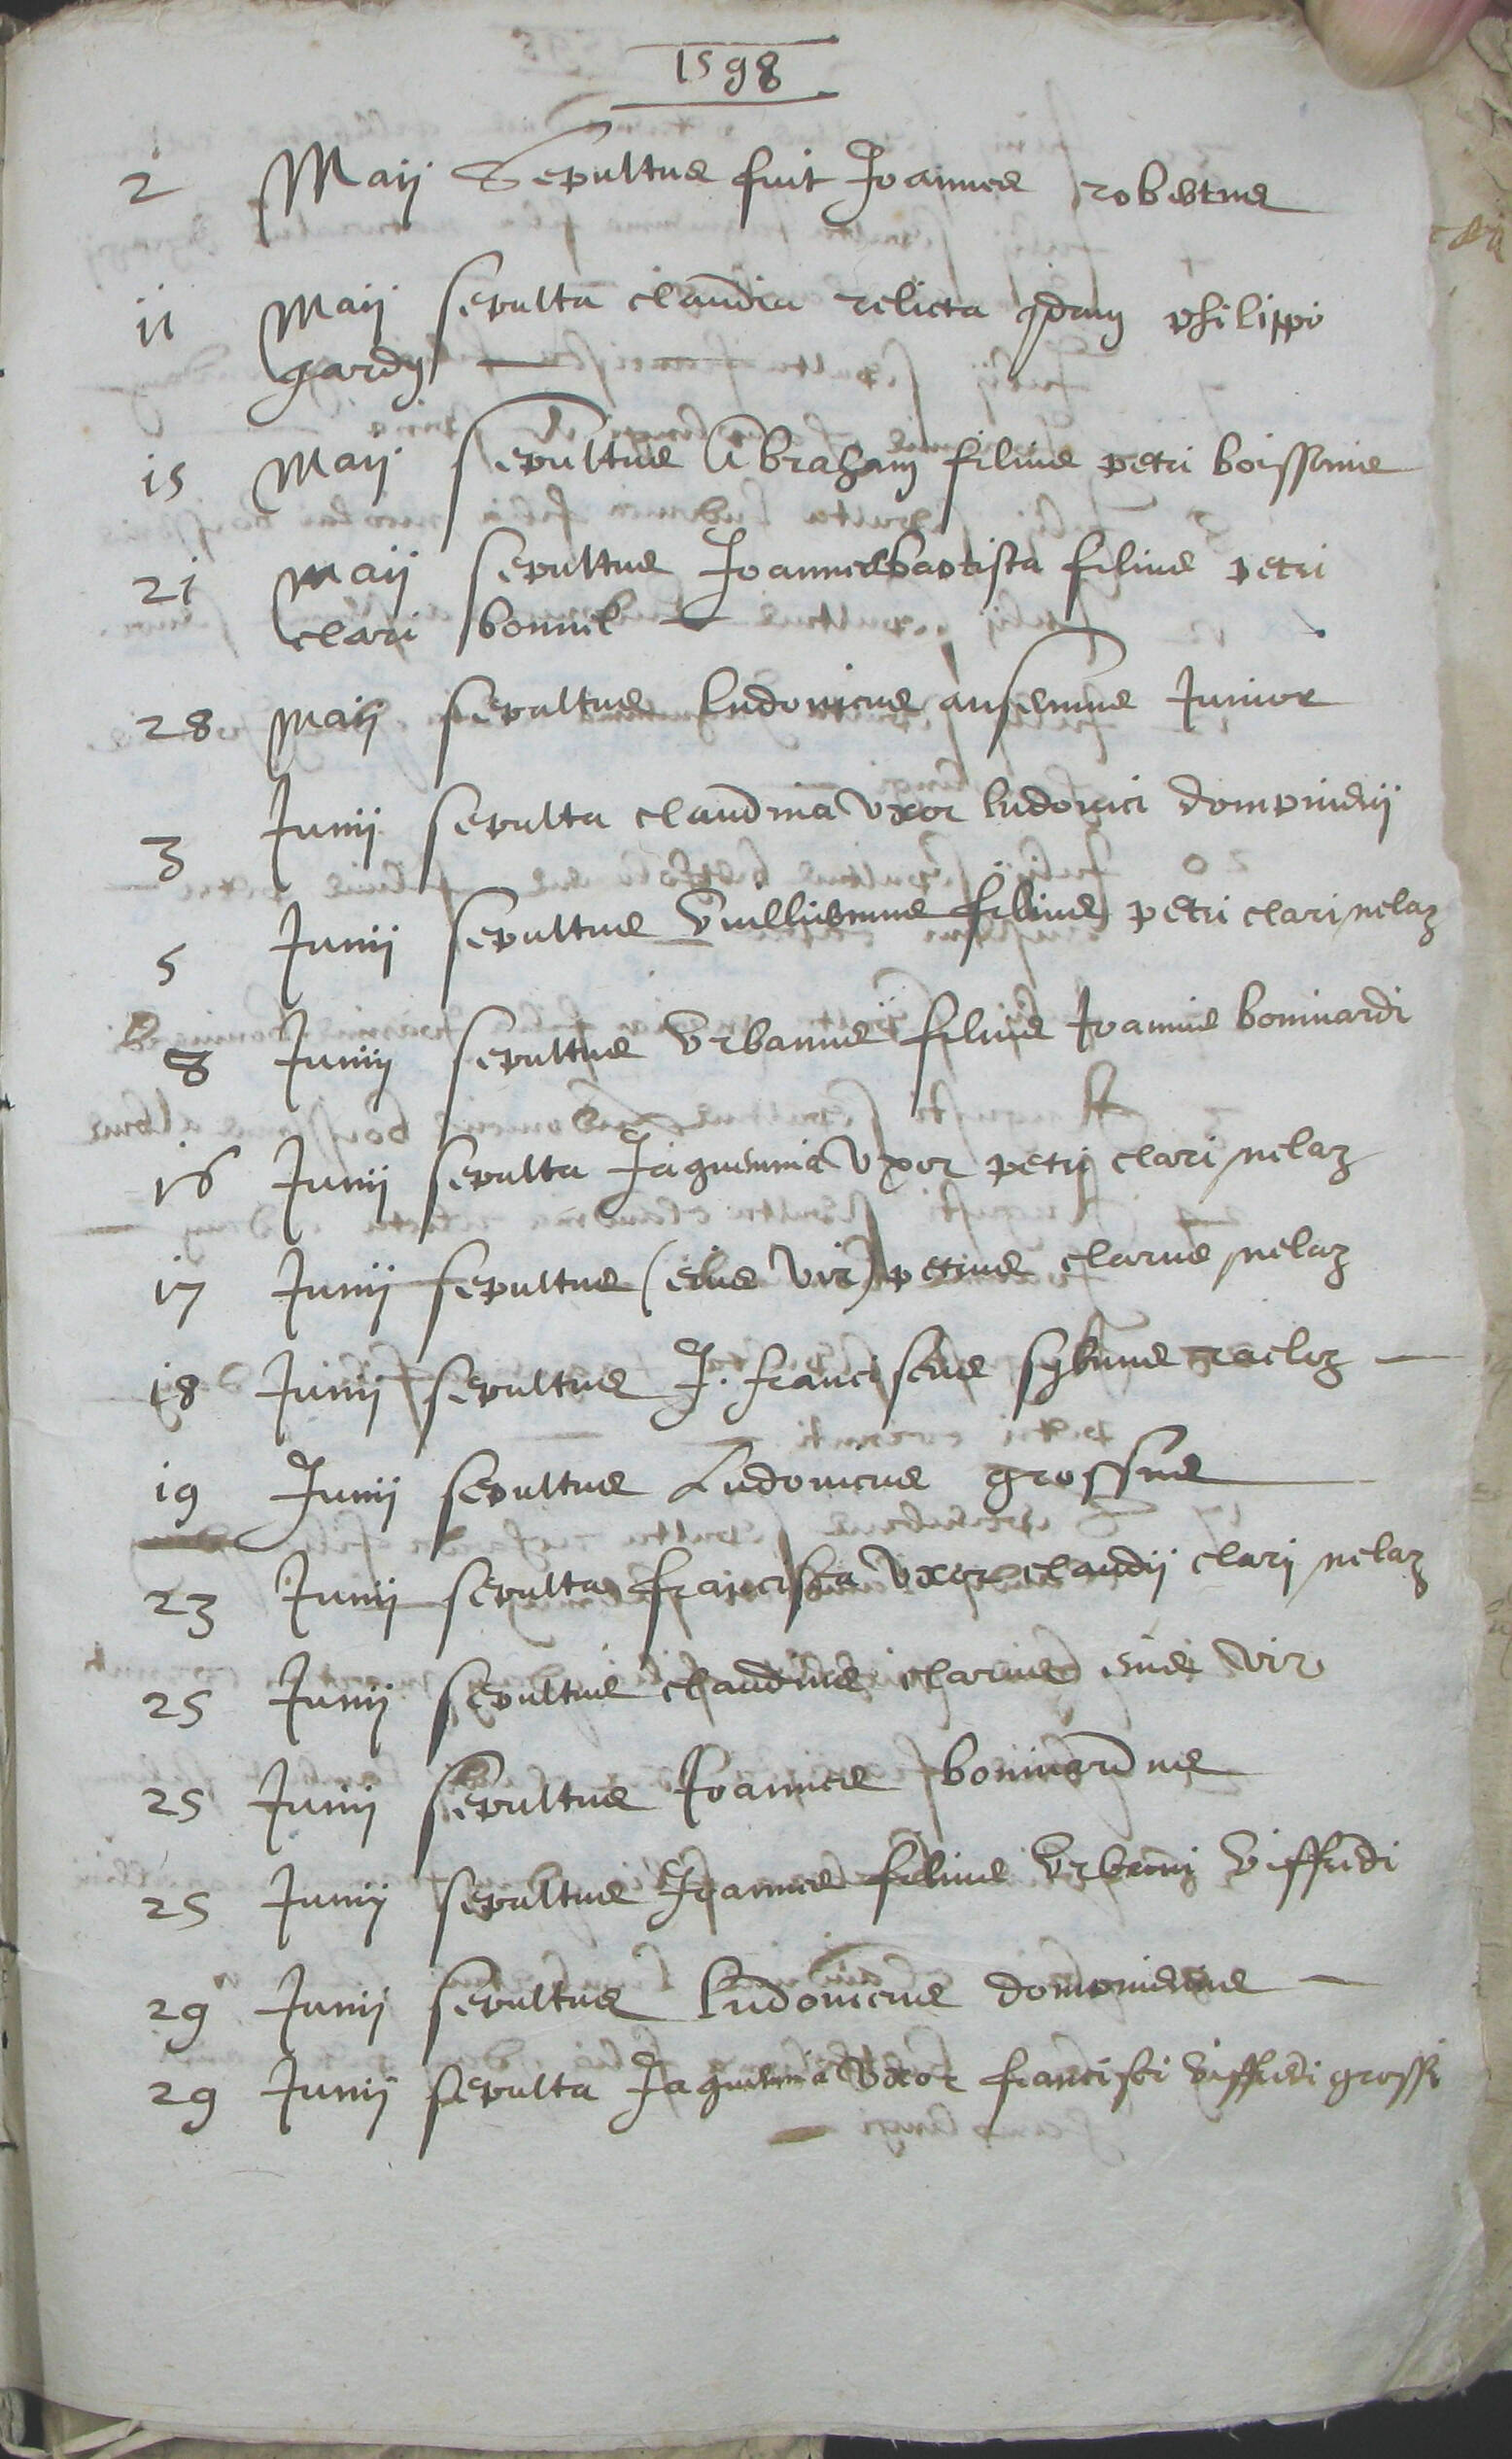 1598
2 Maij Sepultus fuit Joannes robertus
11 Maij sepulta claudia relicta qdam philippi
gardy
15 Maij sepultus Abraham filius petri boissonis
21 Maij sepultus Joannesbaptista filius petri
clari bonnel
28 Maij sepultus ludovicus anselmus Junior
3 Junij sepulta claudina Vxor ludovici dompnierij
5 Junij sepultus Vuillielmus filius petri clari nelaz
8 Junij sepultus Vrbanus filius Joannis boninardi
16 Junij sepulta Jaquemina Vxor petri clari nelaz
17 Junij sepultus (eius vir) petrus clarus nelaz
18 Junij sepultus J. franciscus racloz
19 Junij sepultus Ludovicus grossus
23 Junij sepulta francisca Vxor claudij clari nelaz
25 Junij sepultus claudius clarus eius vir
25 Junij sepultus Joannes boninardus
25 Junij sepultus Joannes filius Vrbani Viffredi
29 Junij sepultus ludovicus dompnierus
29 Junij sepulta Jaquemina Vxor francisci Viffredi grossi